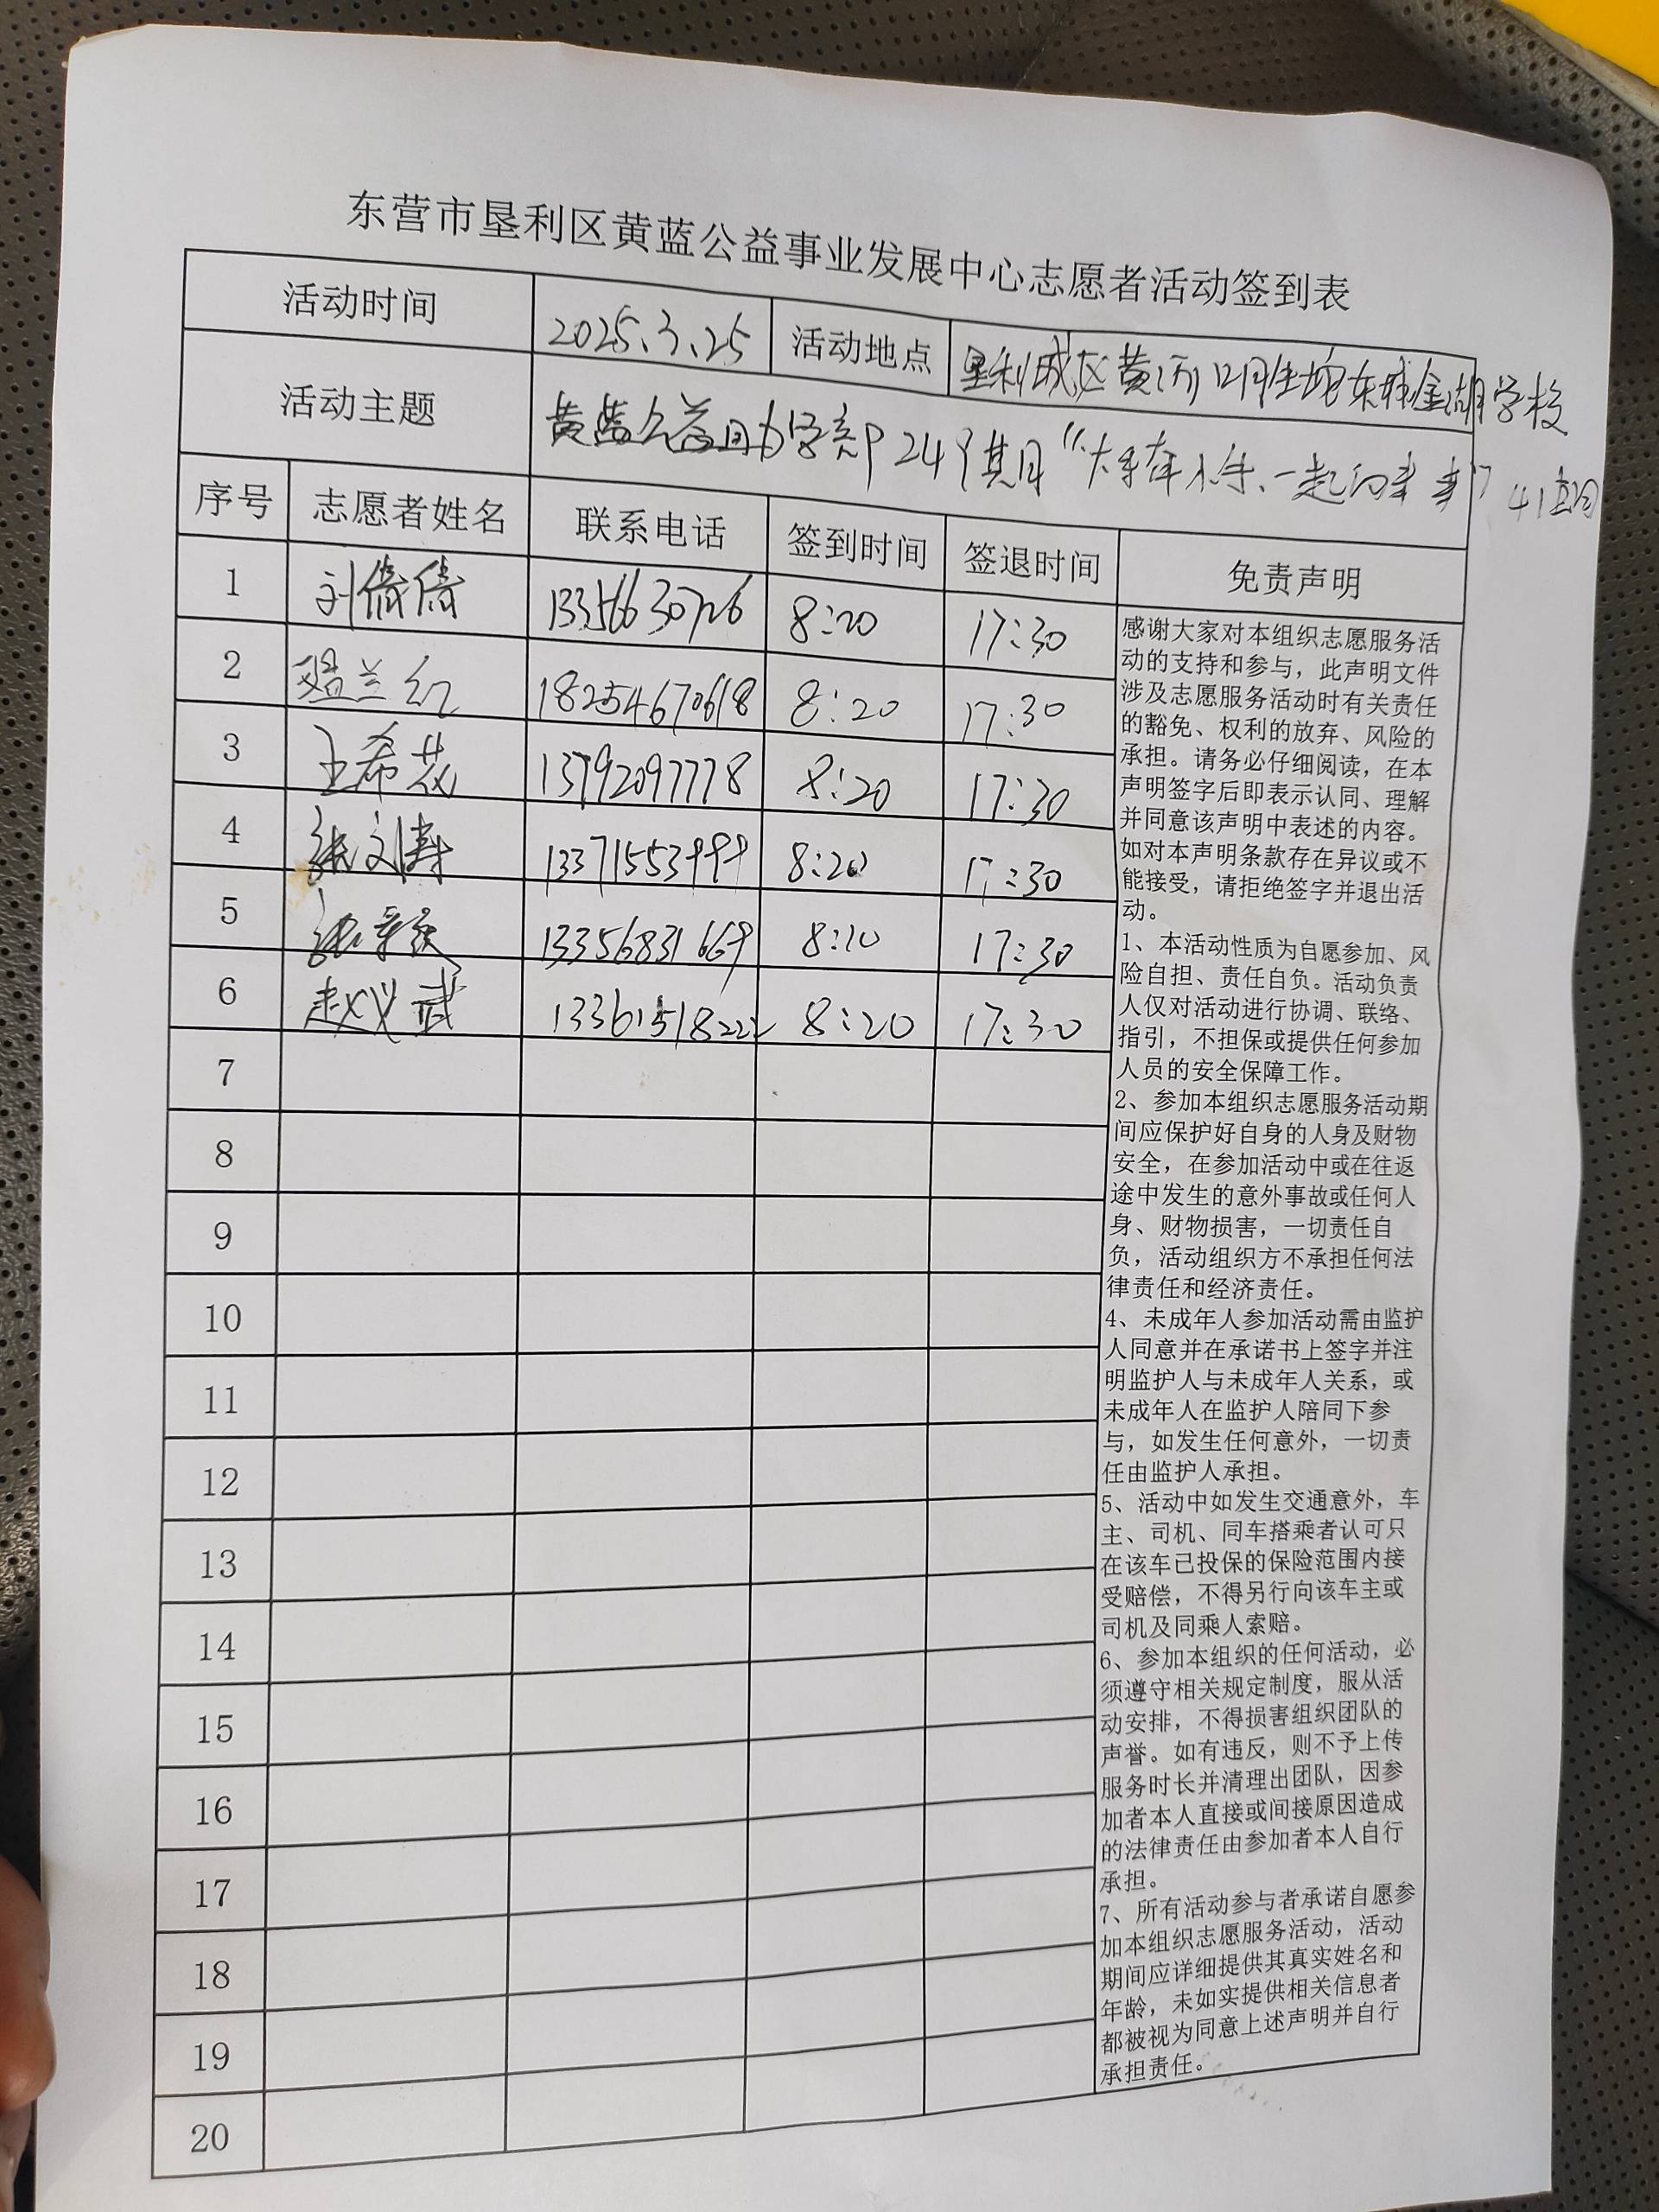 东营市垦利区黄蓝公益事业发展中心志愿者活动签到表
活动时间 2025.3.25 活动地点 垦利城区黄河口 东城金湖学校
活动主题 黄蓝公益助学 24 期 “大手牵小手、一起向未来”
序号 志愿者姓名 联系电话 签到时间 签退时间 免责声明
1 刘倩倩 13356630726 8:20 17:30
2 兰红 18254670618 8:20 17:30
3 王希花 13792097778 8:20 17:30
4 张文涛 13371553999 8:20 17:30
5 13356831669 8:20 17:30
6 赵义武 13361518222 8:20 17:30
7
8
9
10
11
12
13
14
15
16
17
18
19
20
感谢大家对本组织志愿服务活
动的支持和参与，此声明文件
涉及志愿服务活动时有关责任
的豁免、权利的放弃、风险的
承担。请务必仔细阅读，在本
声明签字后即表示认同、理解
并同意该声明中表述的内容。
如对本声明条款存在异议或不
能接受，请拒绝签字并退出活
动。
1、本活动性质为自愿参加、风
险自担、责任自负。活动负责
人仅对活动进行协调、联络、
指引，不担保或提供任何参加
人员的安全保障工作。
2、参加本组织志愿服务活动期
间应保护好自身的人身及财物
安全，在参加活动中或在往返
途中发生的意外事故或任何人
身、财物损害，一切责任自
负，活动组织方不承担任何法
律责任和经济责任。
4、未成年人参加活动需由监护
人同意并在承诺书上签字并注
明监护人与未成年人关系，或
未成年人在监护人陪同下参
与，如发生任何意外，一切责
任由监护人承担。
5、活动中如发生交通意外，车
主、司机、同车搭乘者认可只
在该车已投保的保险范围内接
受赔偿，不得另行向该车主或
司机及同乘人索赔。
6、参加本组织的任何活动，必
须遵守相关规定制度，服从活
动安排，不得损害组织团队的
声誉。如有违反，则不予上传
服务时长并清理出团队，因参
加者本人直接或间接原因造成
的法律责任由参加者本人自行
承担。
7、所有活动参与者承诺自愿参
加本组织志愿服务活动，活动
期间应详细提供其真实姓名和
年龄，未如实提供相关信息者
都被视为同意上述声明并自行
承担责任。